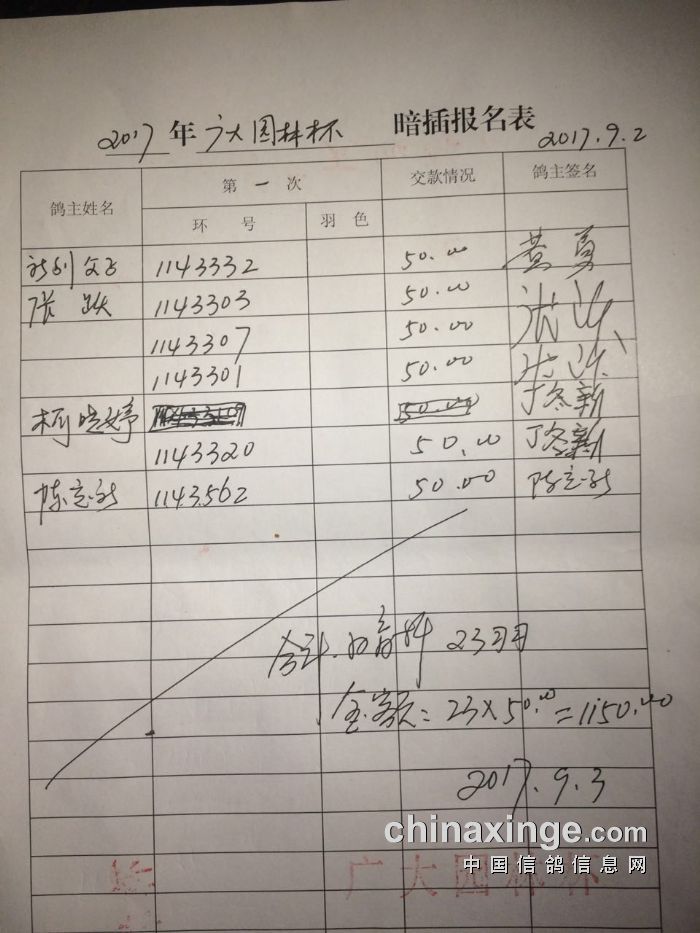 2017 年 广大园林杯 暗插报名表 2017.9.2
鸽主姓名 第一次 交款情况 鸽主签名
环 号 羽 色
1143332 50.00 黄勇
张跃 1143303 50.00
1143307 50.00
1143301 50.00
柯晓婷 50.00 丁冬新
1143320 50.00 丁冬新
陈志新 1143562 50.00 陈志新
合计 23羽
金额: 23×50.00=1150.00
2017.9.3
chinaxinge.com
中国信鸽信息网
广大园林杯